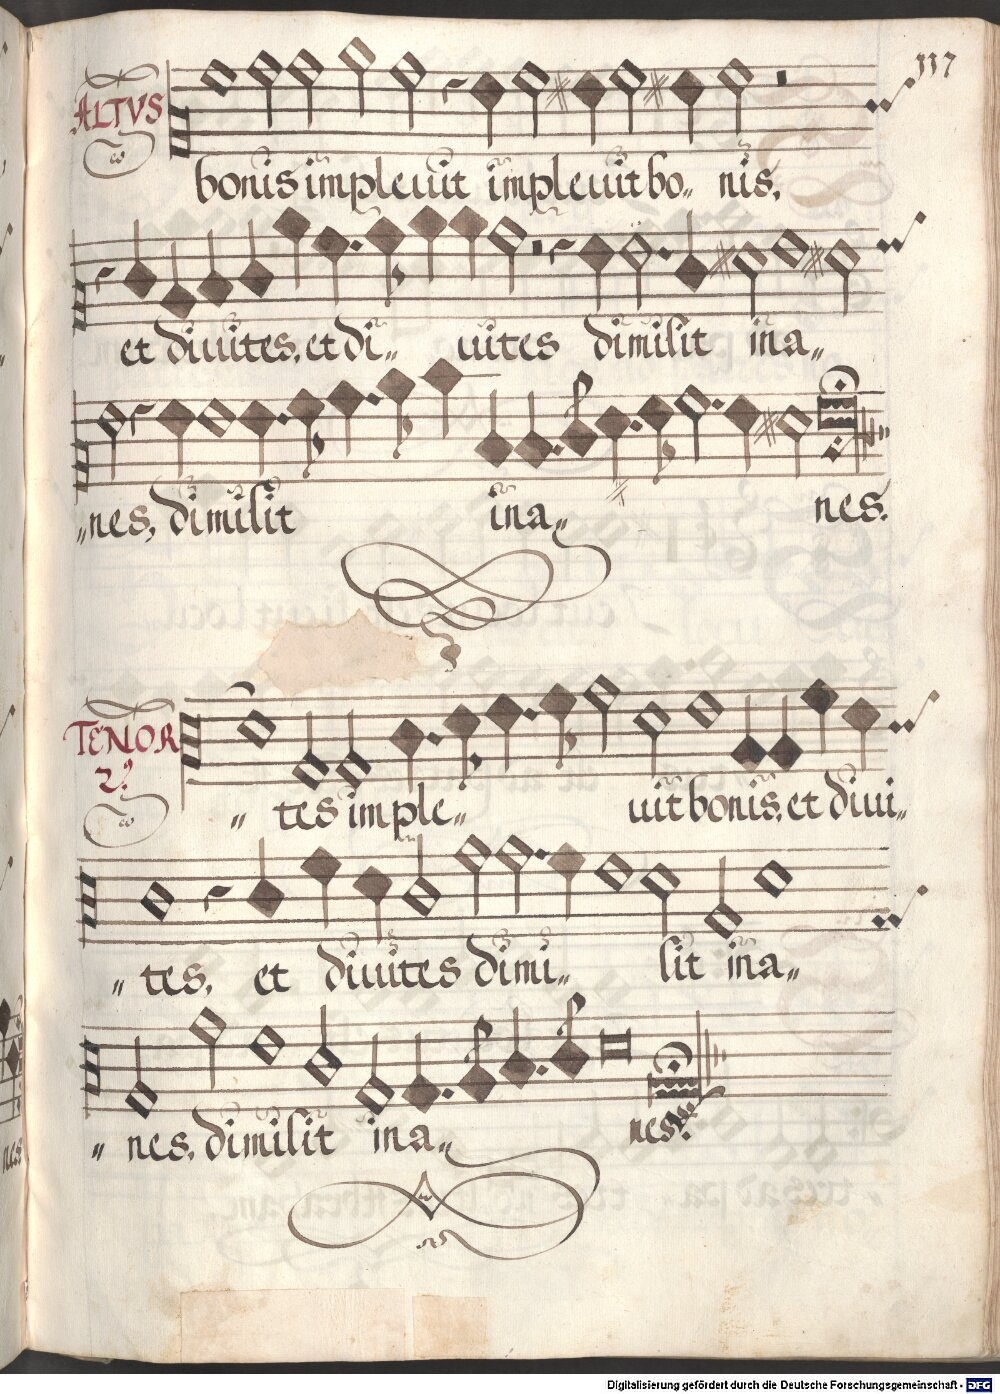 117
ALTVS
bonis impleuit impleuit bo„ nis,
et diuites, et di„ uites dimisit ina„
„nes, dimisit ina„ nes.
TENOR
2.9
„tes imple„ uit bonis, et diui„
„tes, et diuites dimi„ sit ina„
„nes, dimisit ina„ nes.
Digitalisierung gefördert durch die Deutsche Forschungsgemeinschaft - DFG